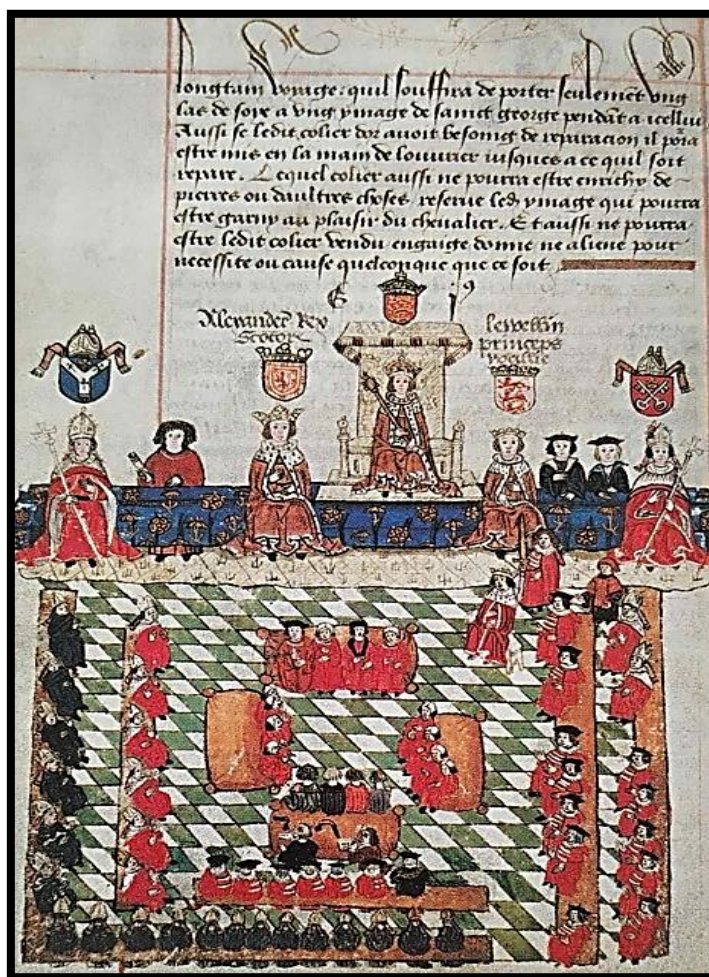 longtain voyage: quil souffira de porter seulement ung
las de soye a ung ymage de sainct george pendāt a icelluy
Aussi se ledit colier dor avoit besoing de reparacion il pora
estre mis en la main de louvrier iusques a ce quil soit
repare. Lequel colier aussi ne pourra estre enrichy de
pierres ou daultres choses reserve led ymage qui pourra
estre garny au plaisir du chevalier. Et aussi ne pourra
estre ledit colier vendu engaige donne ne aliene pour
necessite ou cause quelconque que ce soit
E
Alexander Rex
Scotoru
lewellin
princeps